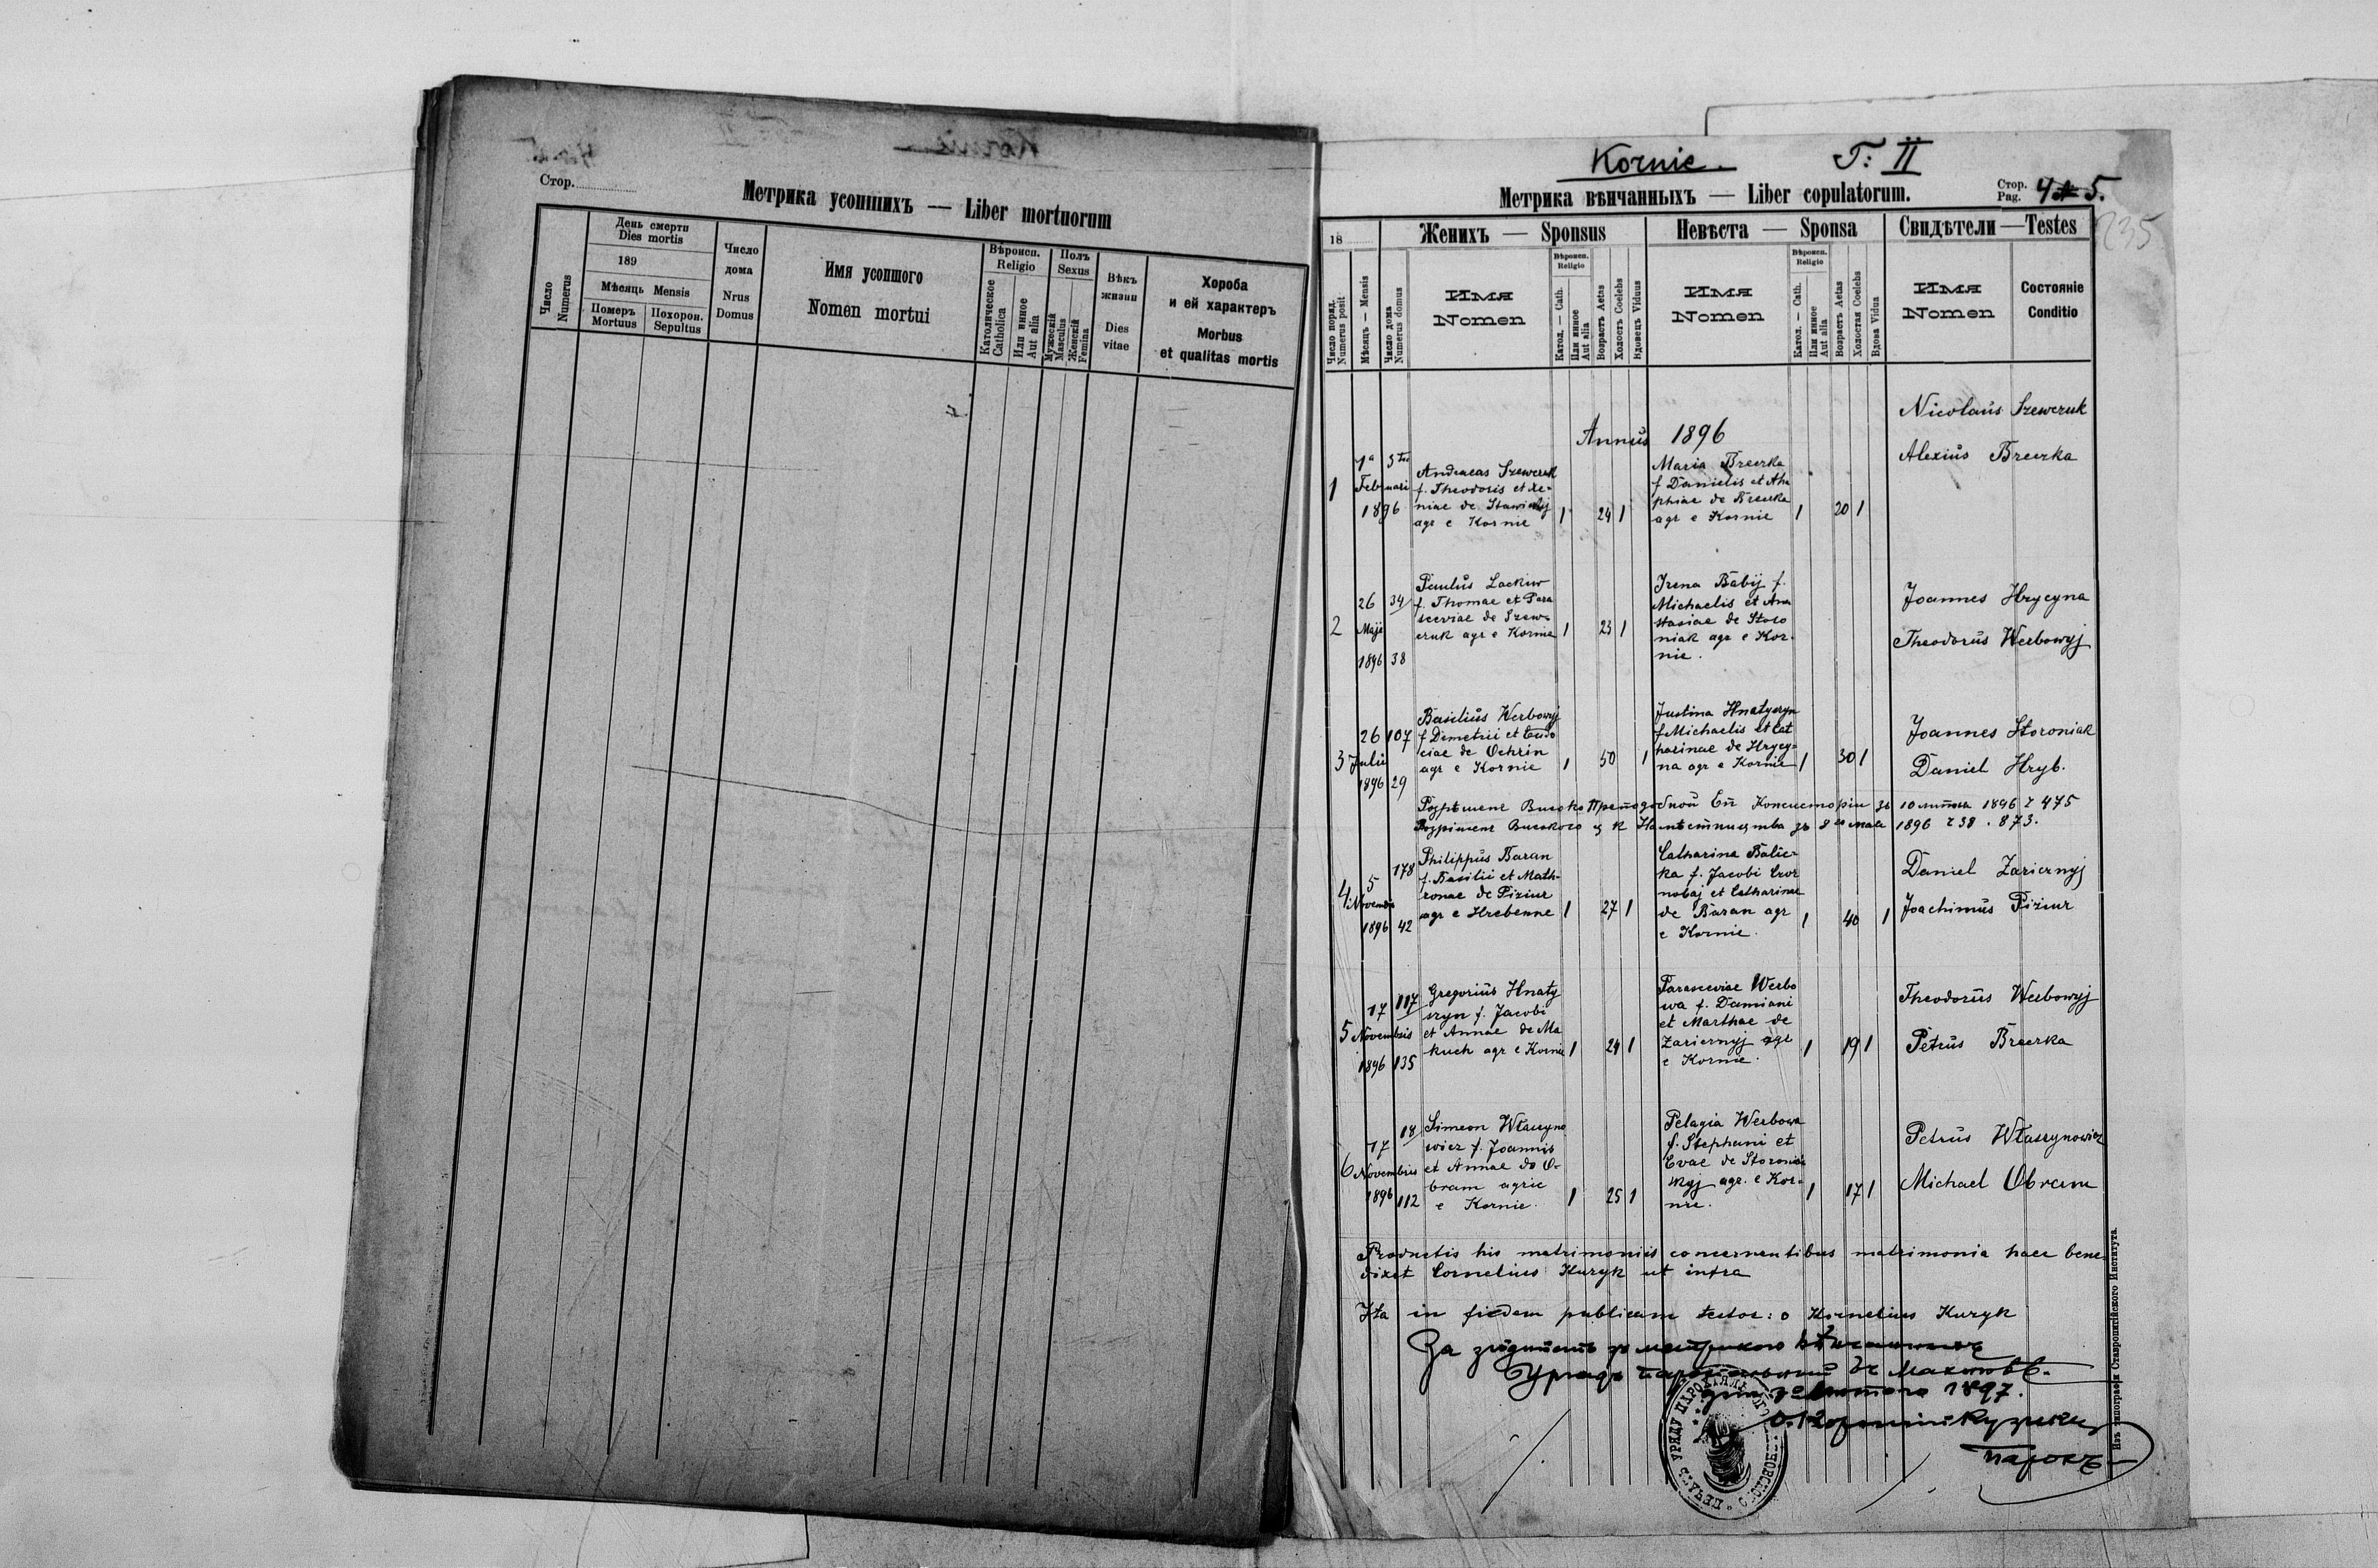 Kornie
Стор.
Метрика усопшихъ — Liber mortuorum
Число
Numerus
День смерти
Dies mortis
189
Мѣсяць Mensis
Померъ
Mortuus
Похорон.
Sepultus
Число
дома
Nrus
Domus
Имя усопшого
Nomen mortui
Вѣроисп.
Religio
Католическое
Catholica
Или инное
Aut alia
Полъ
Sexus
Мужескій
Masculus
Женскій
Femina
Вѣкъ
жизни
Dies
vitae
Хороба
и ей характеръ
Morbus
et qualitas mortis
Kornie. T: II
Метрика вѣнчанныхъ — Liber copulatorum.
Стор.
Pag. 4 5.
235
18
Число поряд.
Numerus posit
Мѣсяць — Mensis
Число дома
Numerus domus
Женихъ — Sponsus
Имя
Nomen
Вѣроисп.
Religio
Катол. — Cath.
Или инное
Aut alia
Возрастъ Aetas
Холостъ Coelebs
Вдовецъ Viduus
Невѣста — Sponsa
Имя
Nomen
Вѣроисп.
Religio
Катол. — Cath.
Или инное
Aut alia
Возрастъ Aetas
Холостая Coelebs
Вдова Vidua
Свидѣтели — Testes
Имя
Nomen
Состояніе
Conditio
Annus 1896
1
Februari
1896
Andreas Szewczuk
f. Theodoris et Xe-
niae de
agr e Kornie
1 24 1
Maria Breczka
f Danielis et
phiae de Breczka
agr e Kornie
1 20 1
Nicolaus Szewczuk
Alexius Breczka
2
26 34
Maji
1896 38
Paulus Lackiw
f. Thomae et Para
sceviae de Szew-
czuk agr e Kornie
1 23 1
Irena Babij f.
Michaelis et Ana
stasiae de Storo
niak agr e Kor-
nie.
Joannes Hrycyna
Theodorus Werbowyj
3
26 107
Julii
1896 29
Basilius Werbowyj
f Demetrii et Eudo
ciae de Ochrin
agr e Kornie
1 50 1
Justina Hnatyszyn
f Michaelis et Cat
harinae de Hrycy-
na agr e Kornie
1 30 1
Joannes Storoniak
Daniel Hryb.
10 1896 475
1896 38. 873.
4
5 178
1896 42
Philippus Baran
f. Basilii et Math-
ronae de Piziur
agr e Hrebenne
1 27 1
Catharina Balic-
ka f. Jacobi Czor
nobaj et Catharinae
de Baran agr
e Kornie.
1 40 1
Daniel Zariernyj
Joachimus Piziur
5
17 117
Novembris
1896 135
Gregorius Hnaty
szyn f. Jacobi
et Annae de Ma
kuch agr e Kornie
1 24 1
Parasceviae Werbo
wa f. Damiani
et Marthae de
Zariernyj agr
e Kornie.
1 19 1
Theodorus Werbowyj
Petrus Breczka
6
17 18
Novembris
1896 112
Simeon Właszyno
wicz f. Joannis
et Annae de O-
bram agric
e Kornie.
1 25 1
Pelagia Werbowa
f. Stephani et
Evae de
agr. e Kor-
nie.
1 17 1
Petrus Właszynowicz
Michael Obram
Productis his matrimoniis concernentibus matrimonia haec bene
dixit Cornelius Kuryk ut infra
Ita in fidem publicam testor: o Kornelius Kuryk
За
Урядъ
1897.
о.
парохъ
Изъ типографіи Ставропигійского Института.